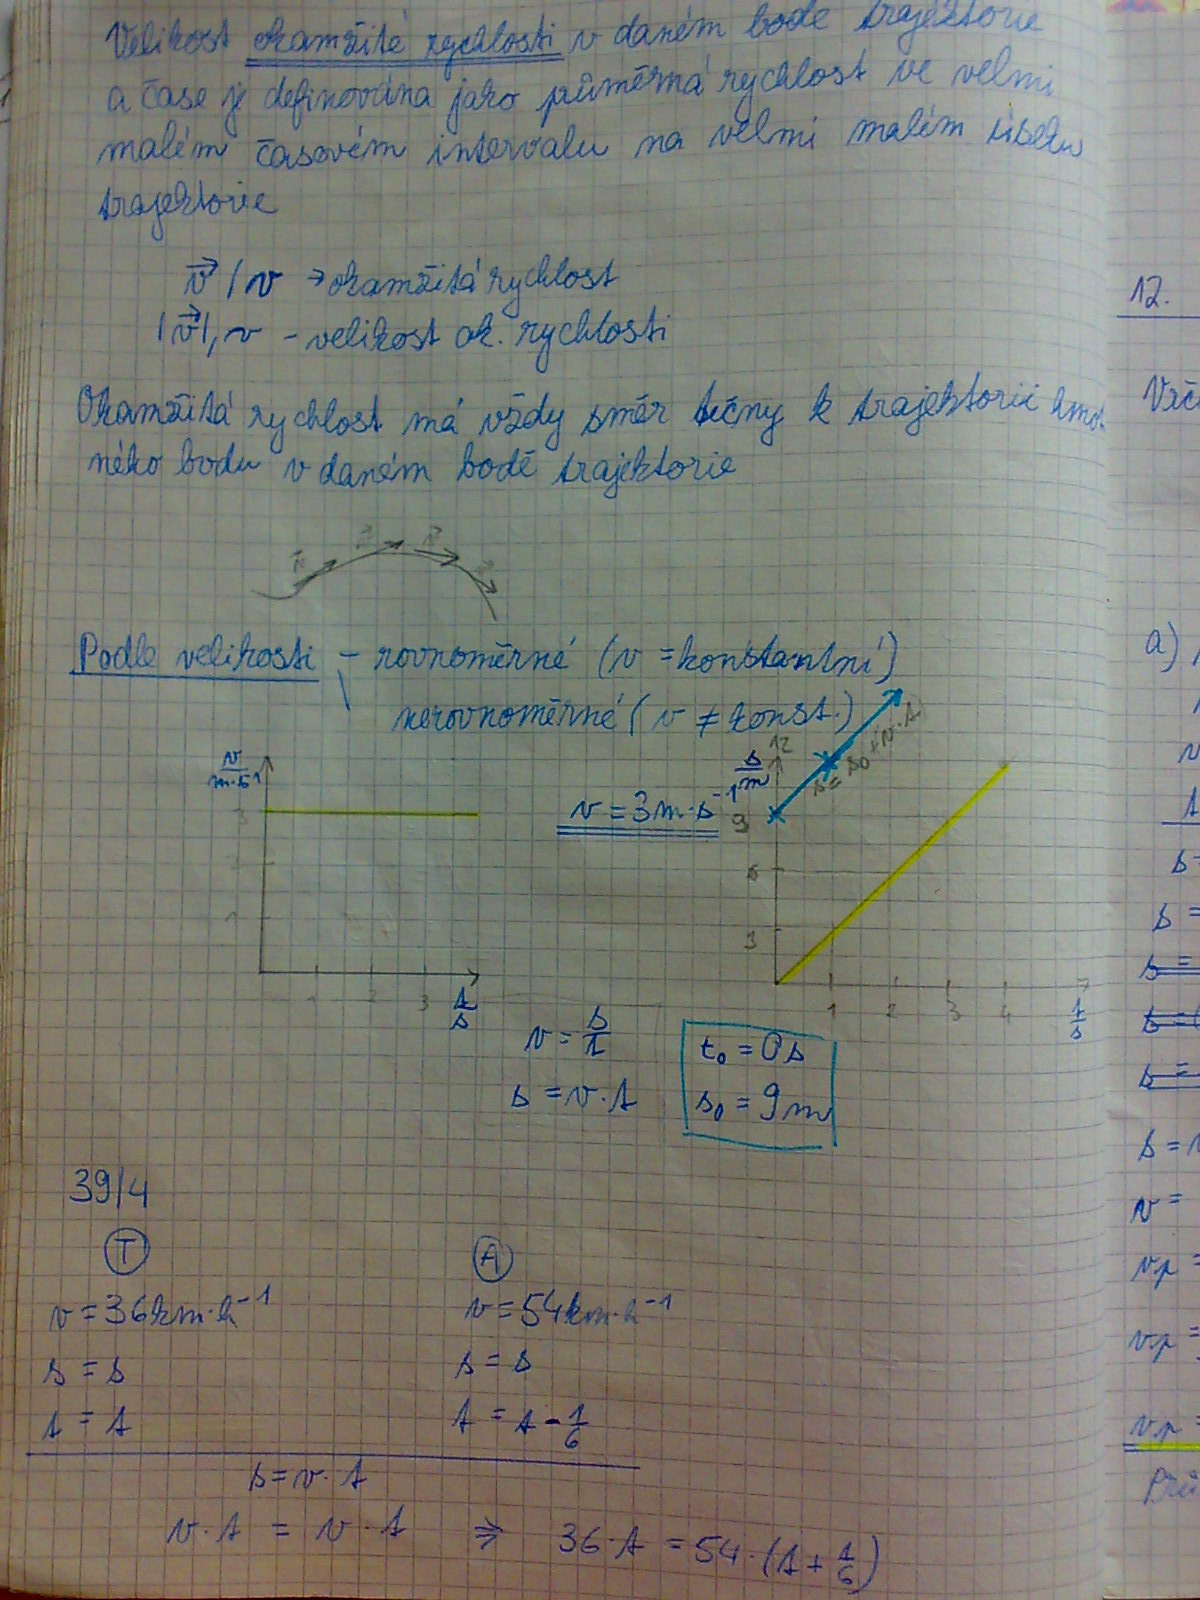 Velikost okamžité rychlosti v daném bodě trajektorie
a čase je definována jako průměrná rychlost ve velmi
malém časovém intervalu na velmi malém úseku
trajektorie
v⃗ / v → okamžitá rychlost
|v⃗|, v - velikost ok. rychlosti
Okamžitá rychlost má vždy směr tečny k trajektorii hmot-
ného bodu v daném bodě trajektorie
v⃗ v⃗ v⃗ v⃗
Podle velikosti - rovnoměrné (v = konstantní)
nerovnoměrné (v ≠ konst.)
v/m·s⁻¹
3
2
1
1 2 3
t/s
v = 3 m·s⁻¹
s/m
12
9
6
3
s = s₀ + v·t
1 2 3 4
t/s
v = s/t
s = v·t
t₀ = 0 s
s₀ = 9 m
39/4
T
v = 36 km·h⁻¹
s = s
t = t
A
v = 54 km·h⁻¹
s = s
t = t - 1/6
s = v·t
v·t = v·t ⇒ 36·t = 54·(t + 1/6)
12.
a)
s =
s =
s =
s =
v =
vp =
vp =
vp =